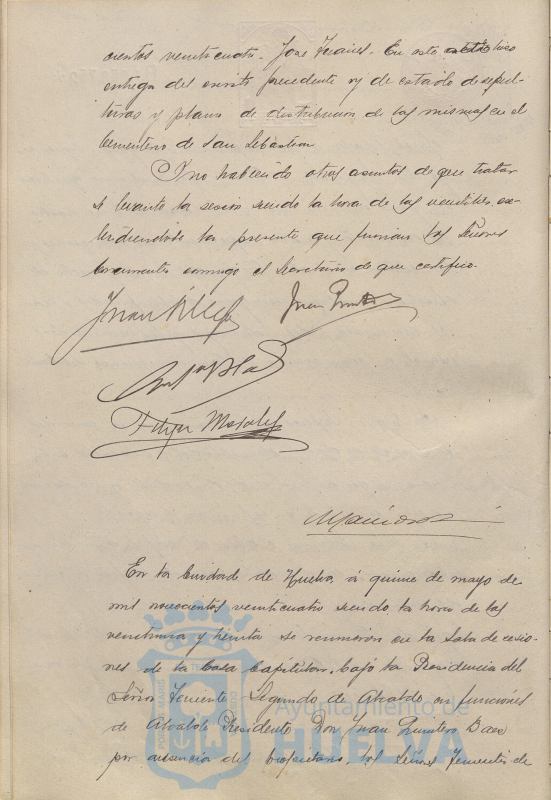 cientos veinticuatro. Jose Suarez. En este acto hizo
entrega del escrito precedente y de estado de sepul-
turas y plano de distribucion de las mismas en el
Cementerio de San Sebastian
Y no habiendo otros asuntos de que tratar
se levantó la sesion siendo la hora de las veintitres ex-
tendiendose la presente que firman los Señores
concurrentes conmigo el Secretario de que certifico.
Juan
Juan Quintero
Felipe Morales
En la Ciudad de Huelva á quince de mayo de
mil novecientos veinticuatro siendo la hora de las
veintiuna y treinta se reunieron en la Sala de sesio-
nes de la Casa Capitular, bajo la Presidencia del
Señor Teniente Segundo de Alcalde en funciones
de Alcalde Presidente Don Juan Quintero Baez
por ausencia del propietario, los Señores Tenientes de
Ayuntamiento de
HUELVA